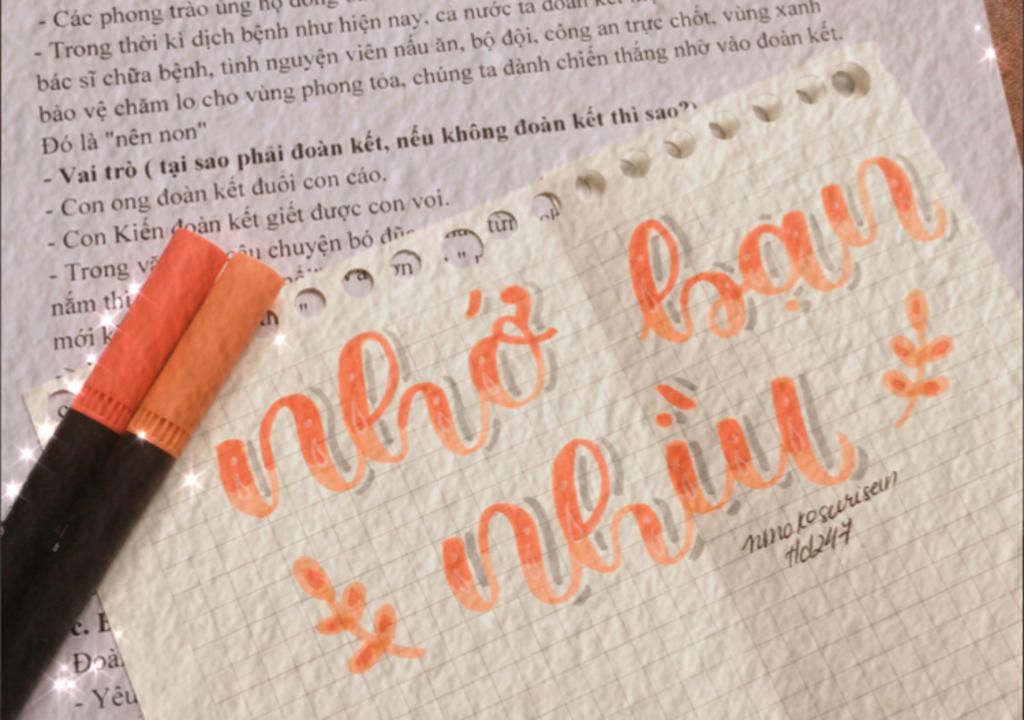 - Các phong trào ủng hộ
- Trong thời kì dịch bệnh như hiện nay. cả nước ta đoàn kết
bác sĩ chữa bệnh, tình nguyện viên nấu ăn, bộ đội, công an trực chốt, vùng xanh
bảo vệ chăm lo cho vùng phong tỏa, chúng ta dành chiến thắng nhờ vào đoàn kết.
Đó là "nên non"
- Vai trò ( tại sao phải đoàn kết, nếu không đoàn kết thì sao?)
- Con ong đoàn kết đuổi con cáo.
- Con Kiến đoàn kết giết được con voi.
- Trong chuyện bó
nắm
mới
nhớ bạn
nhìu
ninokosurisein
Hd247
c.
Đoà
- Yêu